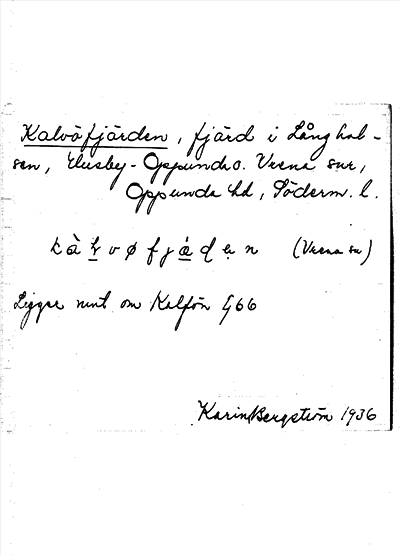 Kalvöfjärden, fjärd i Långhal-
sen, Husby-Oppunda o. Vrena snr,
Oppunda hd, Söderm. l.
(Vrena sn)
Ligger runt om Kalvön G66
Karin Bergström 1936